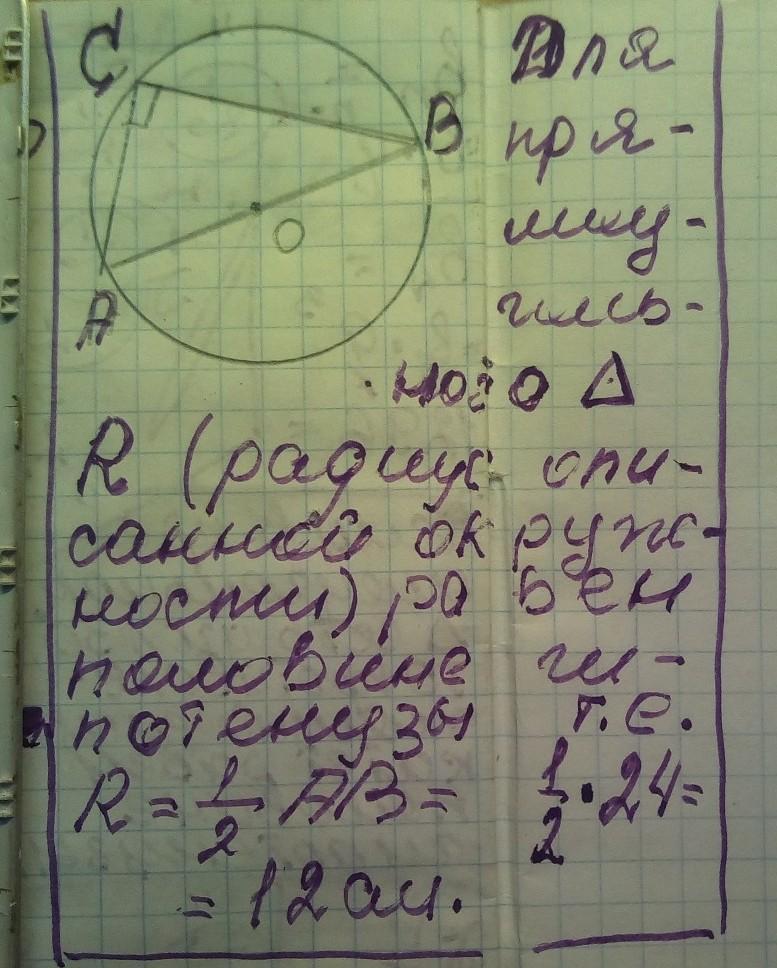 C
B
O
A
Для
пря-
моу-
голь-
ного Δ
R (радиус опи-
санной окруж-
ности) равен
половине ги-
потенузы т.е.
R = 1/2 AB = 1/2 · 24 =
= 12 см.